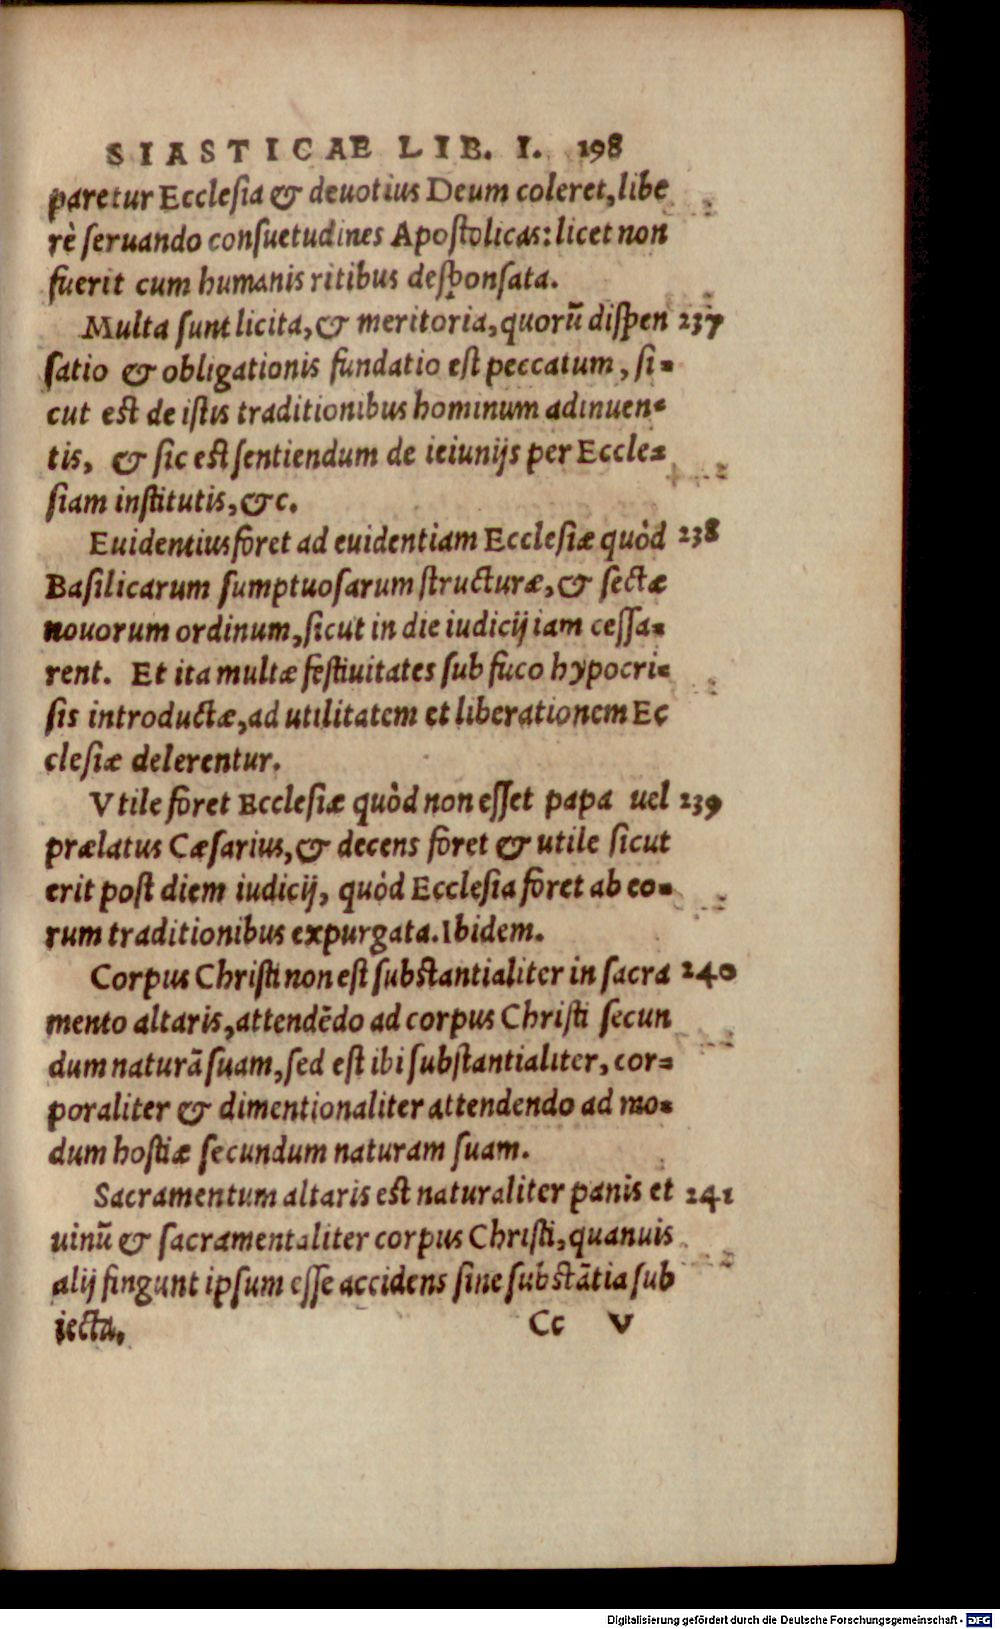 SIASTICAE LIB. I. 198
paretur Ecclesia & deuotius Deum coleret, libe
rè seruando consuetudines Apostolicas: licet non
fuerit cum humanis ritibus desponsata.
Multa sunt licita, & meritoria, quorū dispen 237
satio & obligationis fundatio est peccatum, si-
cut est de istis traditionibus hominum adinuen-
tis, & sic est sentiendum de ieiunijs per Eccle-
siam institutis, &c.
Euidentius foret ad euidentiam Ecclesiæ quòd 238
Basilicarum sumptuosarum structuræ, & sectæ
nouorum ordinum, sicut in die iudicij iam cessa-
rent. Et ita multæ festiuitates sub fuco hypocri-
sis introductæ, ad utilitatem et liberationem Ec
clesiæ delerentur.
Vtile foret Ecclesiæ quòd non esset papa uel 239
prælatus Cæsarius, & decens foret & utile sicut
erit post diem iudicij, quòd Ecclesia foret ab eo-
rum traditionibus expurgata. Ibidem.
Corpus Christi non est substantialiter in sacra 240
mento altaris, attendēdo ad corpus Christi secun
dum naturā suam, sed est ibi substantialiter, cor-
poraliter & dimentionaliter attendendo ad mo-
dum hostiæ secundum naturam suam.
Sacramentum altaris est naturaliter panis et 241
uinū & sacramentaliter corpus Christi, quanuis
alij fingunt ipsum esse accidens sine substātia sub
iecta.
Cc V
Digitalisierung gefördert durch die Deutsche Forschungsgemeinschaft - DFG